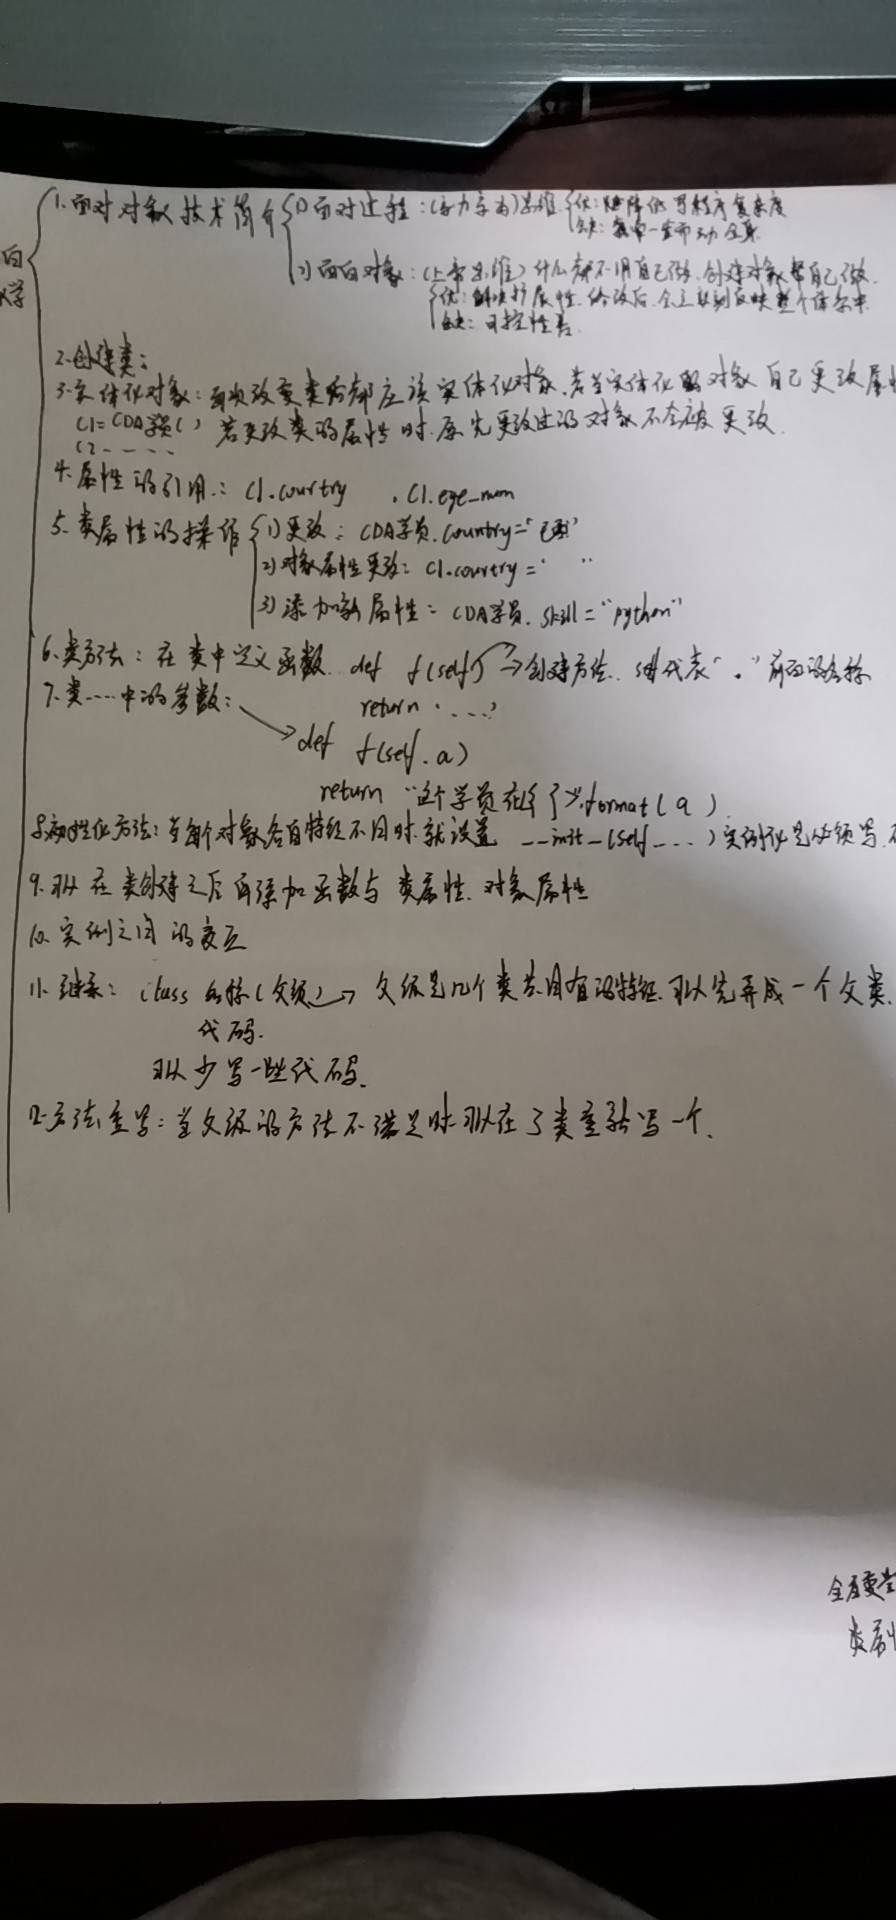 1.面对对象技术简介 1)面对过程:(亲力亲为)思维 优:降低写程序复杂度
缺:牵一发而动全身
2)面向对象:(上帝思维)什么都不用自己做.创建对象帮自己做.
优:解决扩展性.修改后.会立刻反映整个体系中
缺:可控性差
向
学
2.创建类:
3.实体化对象:每次改变类后都应该实体化对象.若当实体化的对象自己更改属性
C1=CDA学员() 若更改类的属性时.原先更改过的对象不会被更改.
C2-----
4.属性的引用:C1.courtry .C1.eye_mom
5.类属性的操作 1)更改:CDA学员.country="
2)对象属性更改:C1.courtry=" "
3)添加 属性:CDA学员.skill="python"
6.类方法:在类中定义函数. def f(self)→创建方法. self代表"."前面的名称
return ....
7.类....中的参数:
→def f(self.a)
return "这个学员在{}".format(a)
8. 方法:当每个对象各自特征不同时.就设置 __init_(self....)
9.可以在类创建之后再添加函数与类属性.对象属性
10.实例之间的交互
11.继承:class 名称(父类)→ 父 是几个类共同有的特征.可以先弄成一个父类.
代码.
可以少写一些代码.
12.方法重写:当父级的方法不满足时可以在子类重新写一个.
类属性